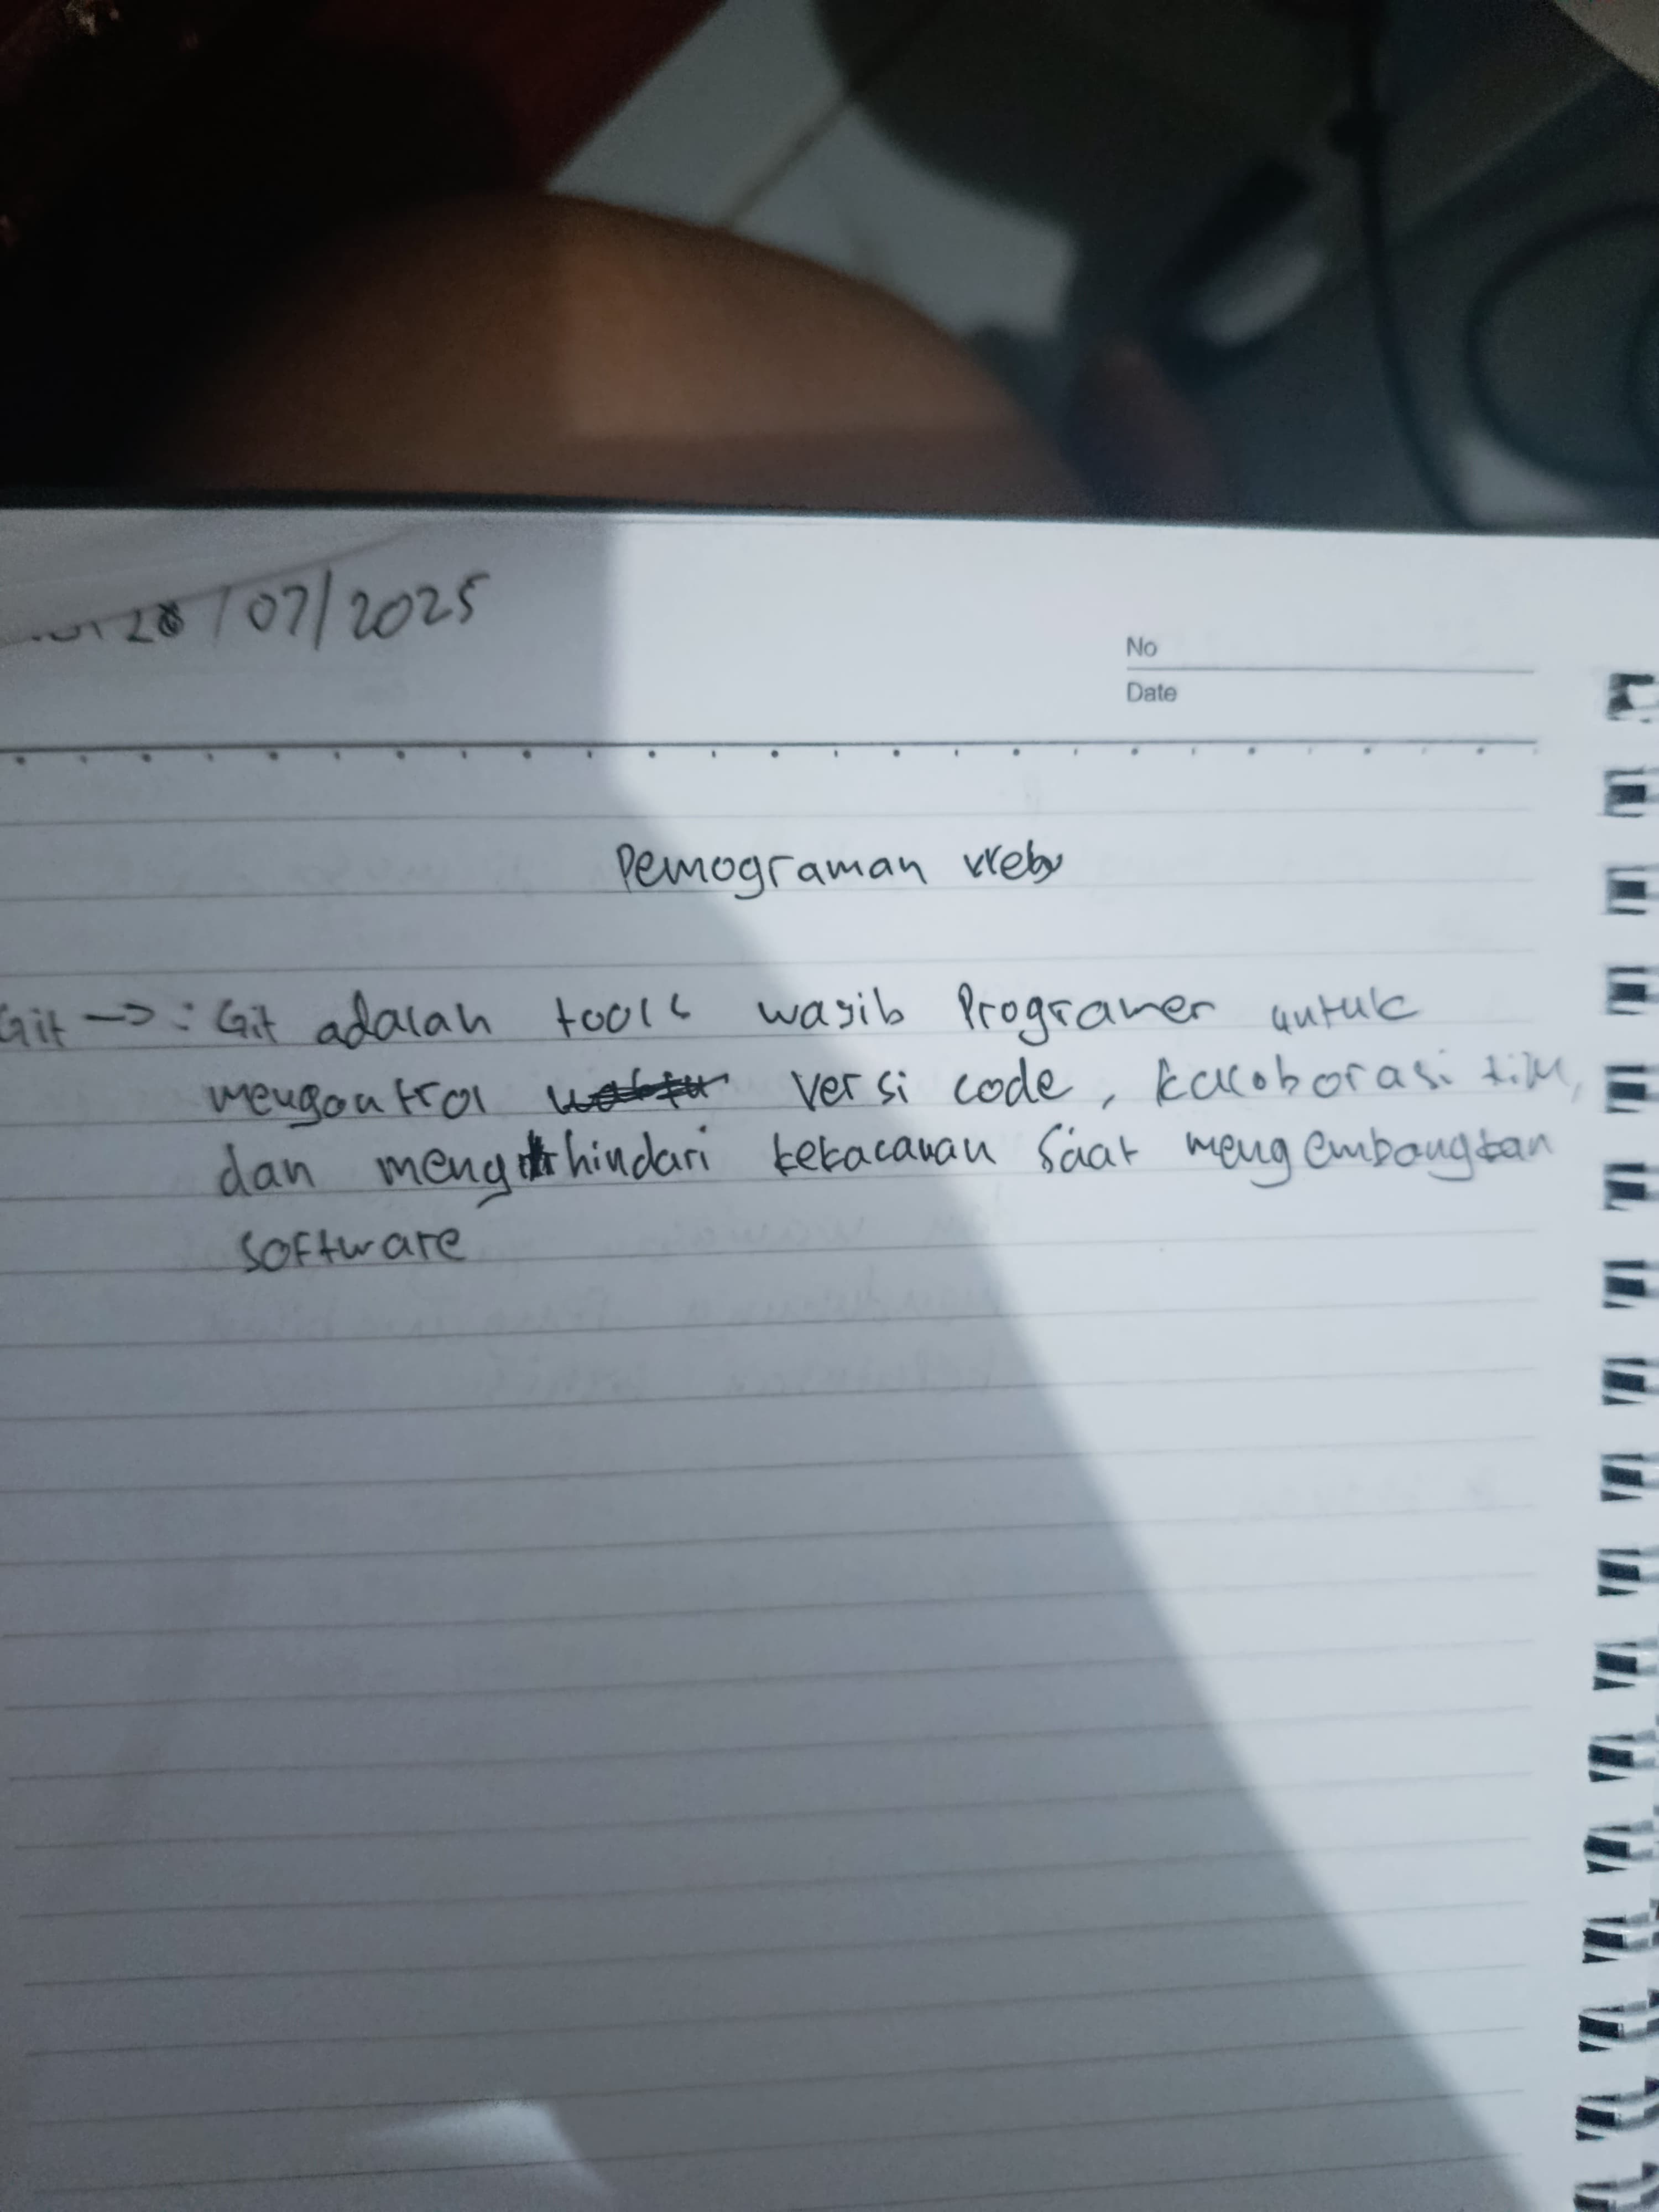 28/07/2025
No
Date
Pemograman Web
Git -> : Git adalah tools wajib Programer untuk
mengontrol versi code, kolaborasi tim,
dan menghindari kekacauan saat mengembangkan
software